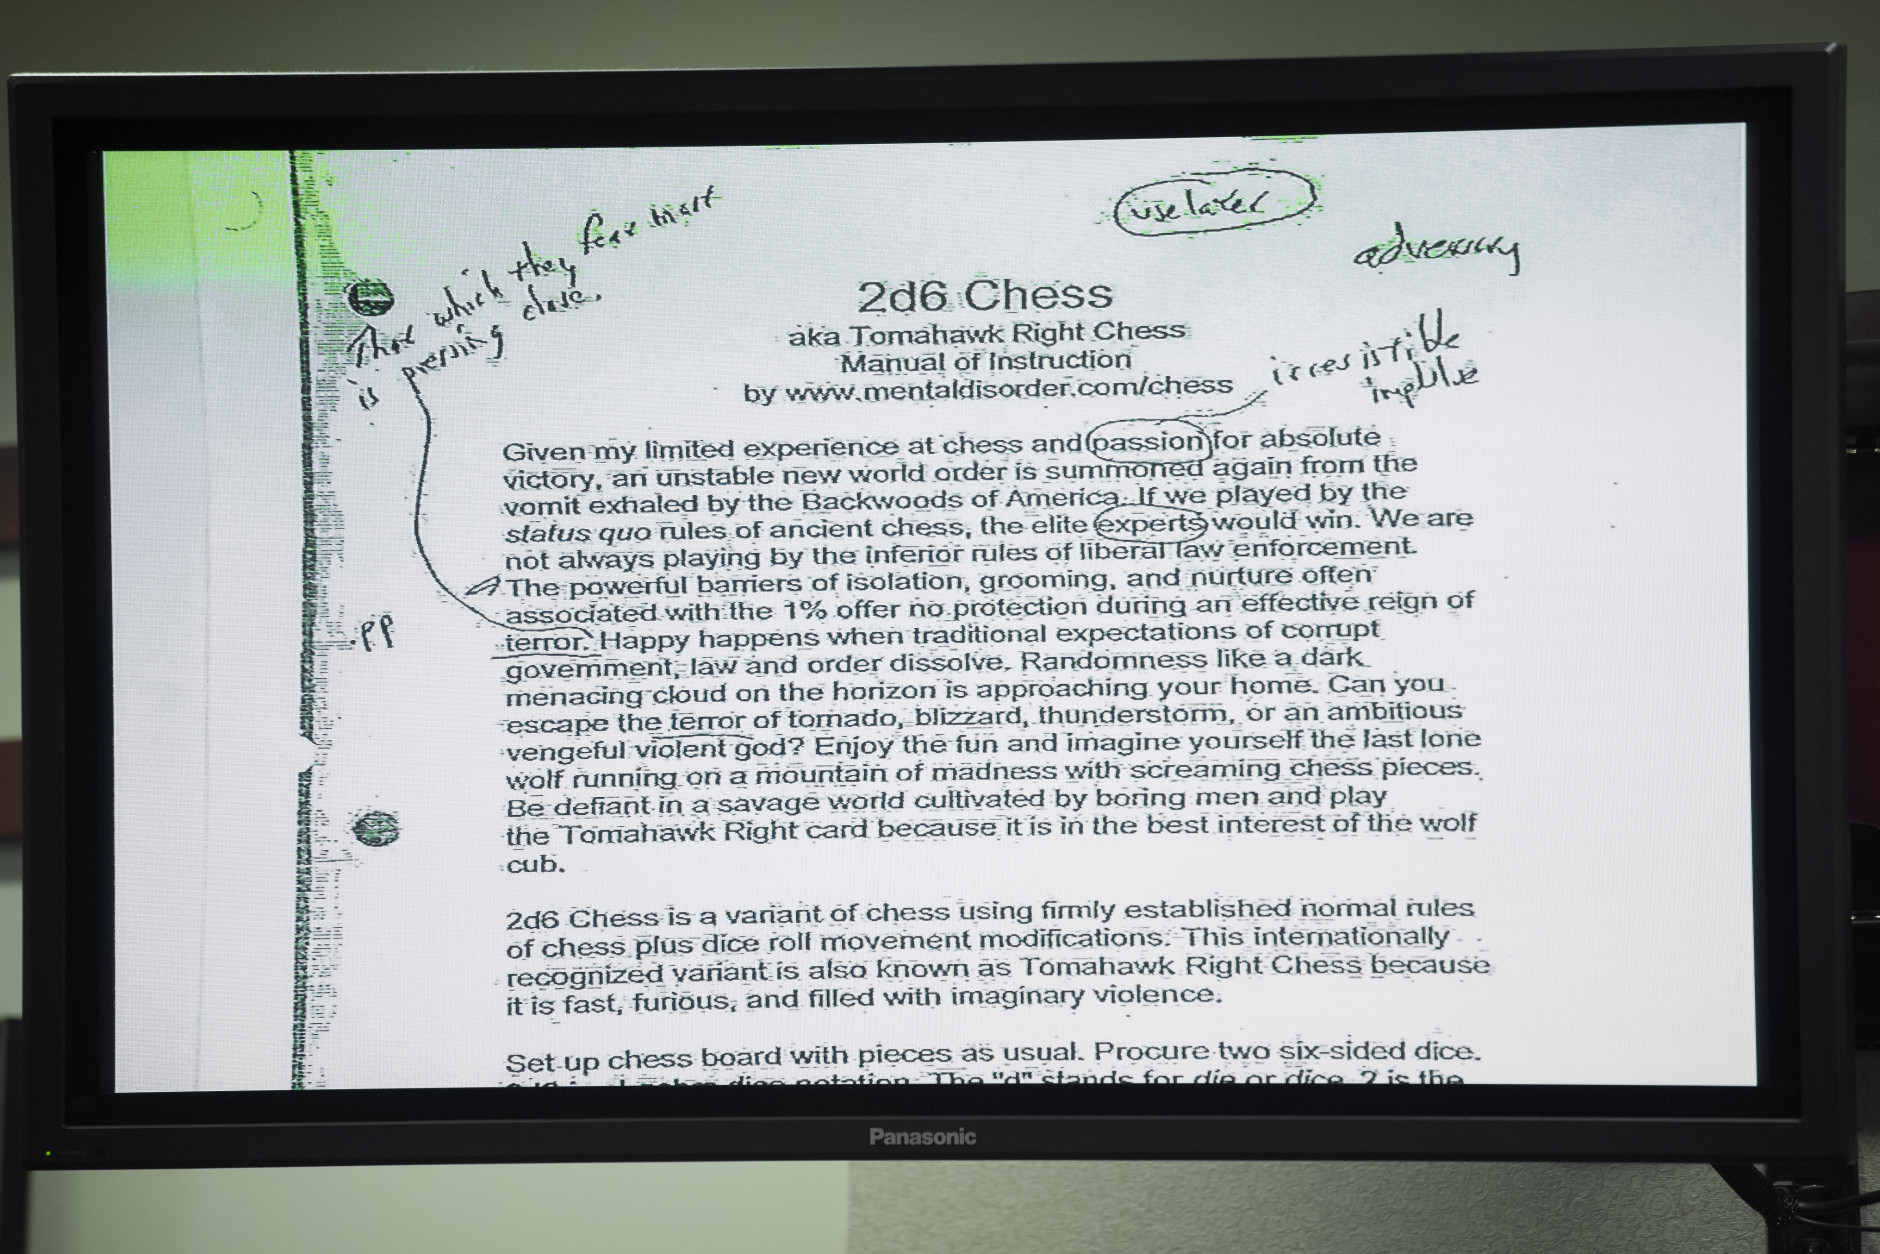 That which they fear most
is pressing close.
use later
adversary
2d6 Chess
aka Tomahawk Right Chess
Manual of Instruction
by www.mentaldisorder.com/chess
irresistible
impulse
Given my limited experience at chess and passion for absolute
victory, an unstable new world order is summoned again from the
vomit exhaled by the Backwoods of America. If we played by the
status quo rules of ancient chess, the elite experts would win. We are
not always playing by the inferior rules of liberal law enforcement.
The powerful barriers of isolation, grooming, and nurture often
associated with the 1% offer no protection during an effective reign of
terror. Happy happens when traditional expectations of corrupt
government, law and order dissolve. Randomness like a dark
menacing cloud on the horizon is approaching your home. Can you
escape the terror of tornado, blizzard, thunderstorm, or an ambitious
vengeful violent god? Enjoy the fun and imagine yourself the last lone
wolf running on a mountain of madness with screaming chess pieces.
Be defiant in a savage world cultivated by boring men and play
the Tomahawk Right card because it is in the best interest of the wolf
cub.
PP
2d6 Chess is a variant of chess using firmly established normal rules
of chess plus dice roll movement modifications. This internationally
recognized variant is also known as Tomahawk Right Chess because
it is fast, furious, and filled with imaginary violence.
Set up chess board with pieces as usual. Procure two six-sided dice.
dice notation. The "d" stands for die or dice. 2 is the
Panasonic